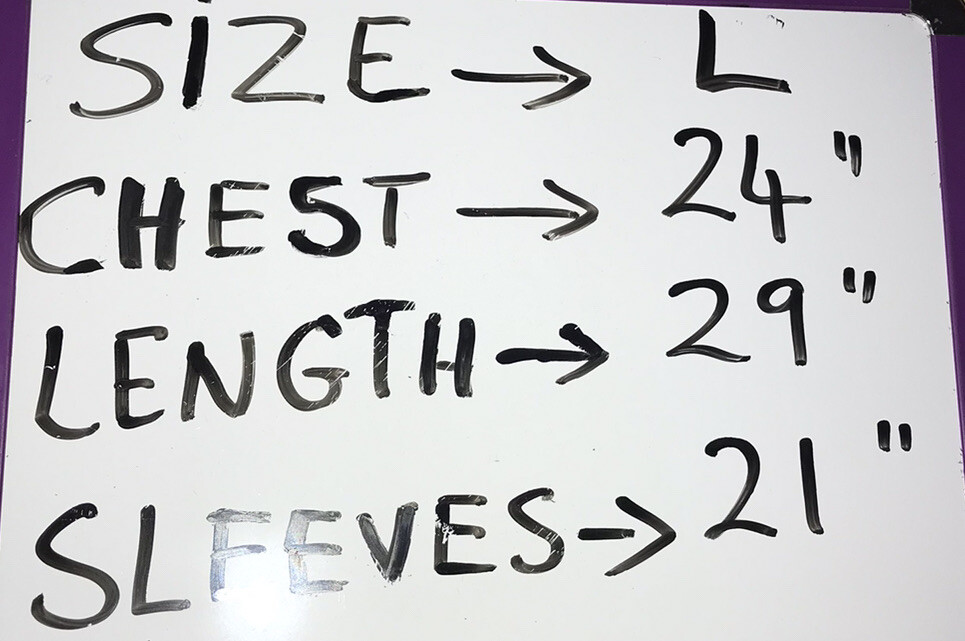 SIZE → L
CHEST → 24"
LENGTH → 29"
SLEEVES → 21"